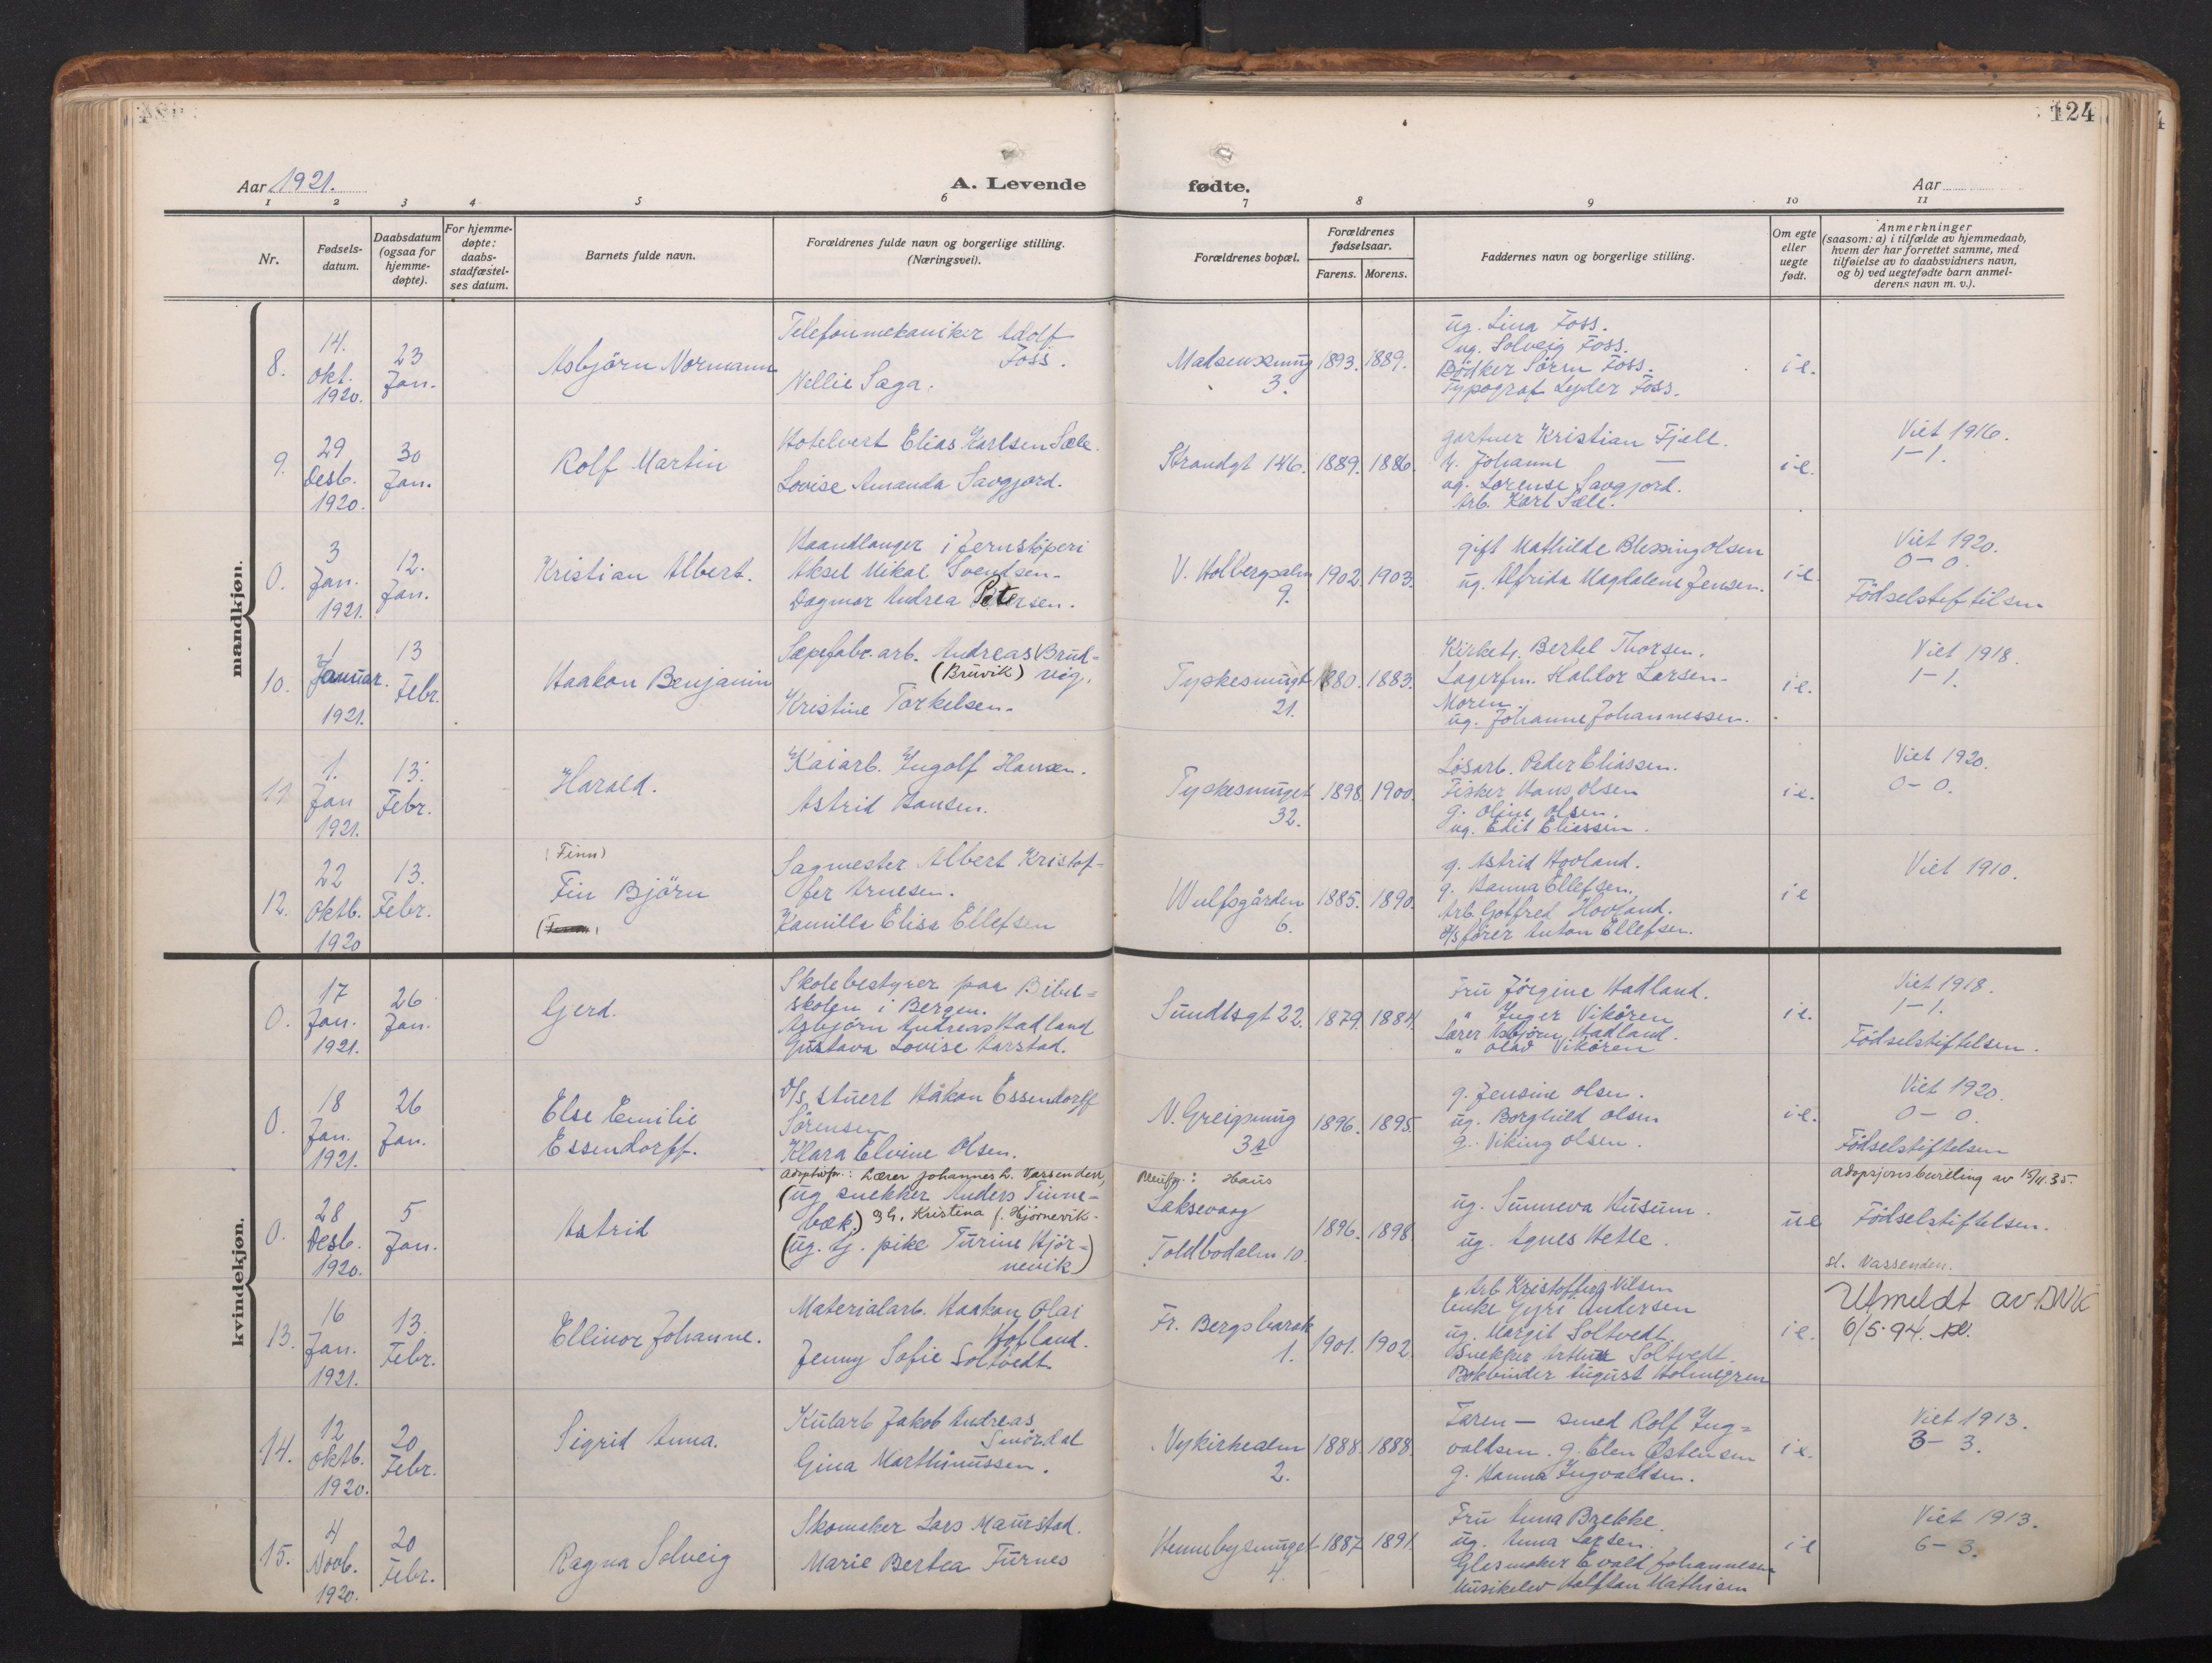 124
Aar 1921.
A. Levende
fødte.
Aar
1 2 3 4 5 6 7 8 9 10 11
Nr.
Fødsels-
datum.
Daabsdatum
(ogsaa for
hjemme-
døpte).
For hjemme-
døpte:
daabs-
stadfæstel-
ses datum.
Barnets fulde navn.
Forældrenes fulde navn og borgerlige stilling.
(Næringsvei).
Forældrenes bopæl.
Forældrenes
fødselsaar.
Farens. Morens.
Faddernes navn og borgerlige stilling.
Om egte
eller
uegte
født.
Anmerkninger
(saasom: a) i tilfælde av hjemmedaab,
hvem der har forrettet samme, med
tilføielse av to daabsvidners navn,
og b) ved uegtefødte barn anmel-
derens navn m. v.).
mandkjøn.
8.
14.
Okt.
1920.
23
Jan.
Asbjörn Normann
Telefonmekaniker Adolf
Foss.
Nellie Saga.
Madsensmug
3.
1893. 1889.
ug. Lina Foss.
ug. Solveig Foss.
Bödker Sören Foss.
Typograf Lyder Foss.
i e.
9.
29
Desb.
1920.
30
Jan.
Rolf Martin
Hotelvert Elias Karlsen Sæle.
Lovise Amanda Savgjord.
Strandgt 146.
1889. 1886.
gartner Kristian Fjell.
h. Johanne —
ug. Lorense Savgjord.
Arb. Karl Sæle.
i e.
Viet 1916.
1-1.
0.
3
Jan.
1921.
12.
Jan.
Kristian Albert.
Haandlanger i Jernstöperi
Aksel Mikal Svendsen-
Dagmar Andrea Petersen.
V. Holbergsalm
9.
1902. 1903.
gift Mathilde Blessing Olsen
ug. Alfrida Magdalene Jensen.
i e.
Viet 1920.
0-0.
Födselstiftelsen
10.
1
Januar.
1921.
13
Febr.
Haakon Benjamin
Sæpefabr.arb. Andreas Brud-
(Bruvik) vig.
Kristine Torkelsen.
Tyskesmugt
21.
1880. 1883.
Kirketj. Bertel Thorsen.
Lagerfm. Haldor Larsen.
Moren.
ug. Johanne Johannessen.
i e.
Viet 1918.
1-1.
11
1.
Jan
1921.
13.
Febr.
Harald.
Kaiarb. Ingolf Hansen.
Astrid Hansen.
Tyskesmuget
32.
1898. 1900.
Lösarb. Peder Eliassen.
Fisker Hans Olsen
g. Oline Olsen.
ug. Edit Eliassen.
i e.
Viet 1920.
0-0.
12.
22
Oktb.
1920
13.
Febr.
(Finn)
Fin Björn
Sagmester Albert Kristof-
fer Arnesen.
Kamilla Elisa Ellefsen
Wulfsgården
6.
1885. 1890.
g. Astrid Hovland.
g. Hanna Ellefsen.
Arb. Gotfred Hovland.
D/s förer Anton Ellefsen.
i e
Viet 1910.
kvindekjøn.
0.
17
Jan.
1921.
26
Jan.
Gjerd.
Skolebestyrer paa Bibel=
skolen i Bergen.
Asbjörn Andreas Hadland
Gustava Lovise Aarstad.
Sundtsgt 22.
1879. 1884.
Fru Jörgine Hadland.
" Inger Vikören
Lærer Asbjörn Hadland.
" Olav Vikören
i e.
Viet 1918.
1-1.
Födselstiftelsen.
0.
18
Jan.
1921.
26
Jan.
Else Emilie
Essendorff.
D/s stuert Håkon Essendorff
Sörensen
Klara Elvine Olsen.
N. Greigsmug
3a
1896. 1895.
g. Jensine Olsen.
ug. Borghild Olsen
g. Viking Olsen.
i e.
Viet 1920.
0-0.
Födselstiftelsen
0.
28
Desb.
1920.
5
Jan.
Astrid
Adoptivfor.: Lærer Johannes L. Vassenden,
(ug. snekker Anders Tinne-
bæk.) og h. Kristina f. Hjörnevik.
(ug. tj. pike Turine Hjör=
nevik)
Haus
Laksevaag
Toldbodalm 10.
1896. 1898.
ug. Sunneva Husum.
ug. Agnes Hetle.
u e
Adopsjonsbevilling av 15/11.35.
Födselstiftelsen.
sl. Vassenden.
13.
16
Jan.
1921.
13.
Febr.
Ellinor Johanne.
Materialarb. Haakon Olai
Hofland.
Jenny Sofie Soltvedt
Fr. Bergsbarak
1.
1901. 1902.
Arb Kristoffer Nilsen
Enke Gyri Andersen
ug. Margit Soltvedt.
Snekker Arthur Soltvedt.
Bokbinder August Holmegren
i e.
Utmeldt av DNK
6/5-94.
14.
12
Oktb.
1920.
20
Febr.
Sigrid Anna.
Kularb Jakob Andreas
Smördal
Gina Marthinussen.
Nykirkealm
2.
1888. 1888.
Faren - smed Rolf Ing=
valdsen. g. Elen Östensen
g. Hanna Ingvaldsen.
i e.
Viet 1913.
3-3.
15.
4
Novb.
1920.
20
Febr.
Ragna Solveig
Skomaker Lars Maurstad.
Marie Bertea Furnes
Hennebysmuget
4.
1887 1891
Fru Anna Brekke.
ug. Anna Larsen.
Glasmaker Evald Johannesen
Musikelev Halfdan Mathisen
i e
Viet 1913.
6-3.